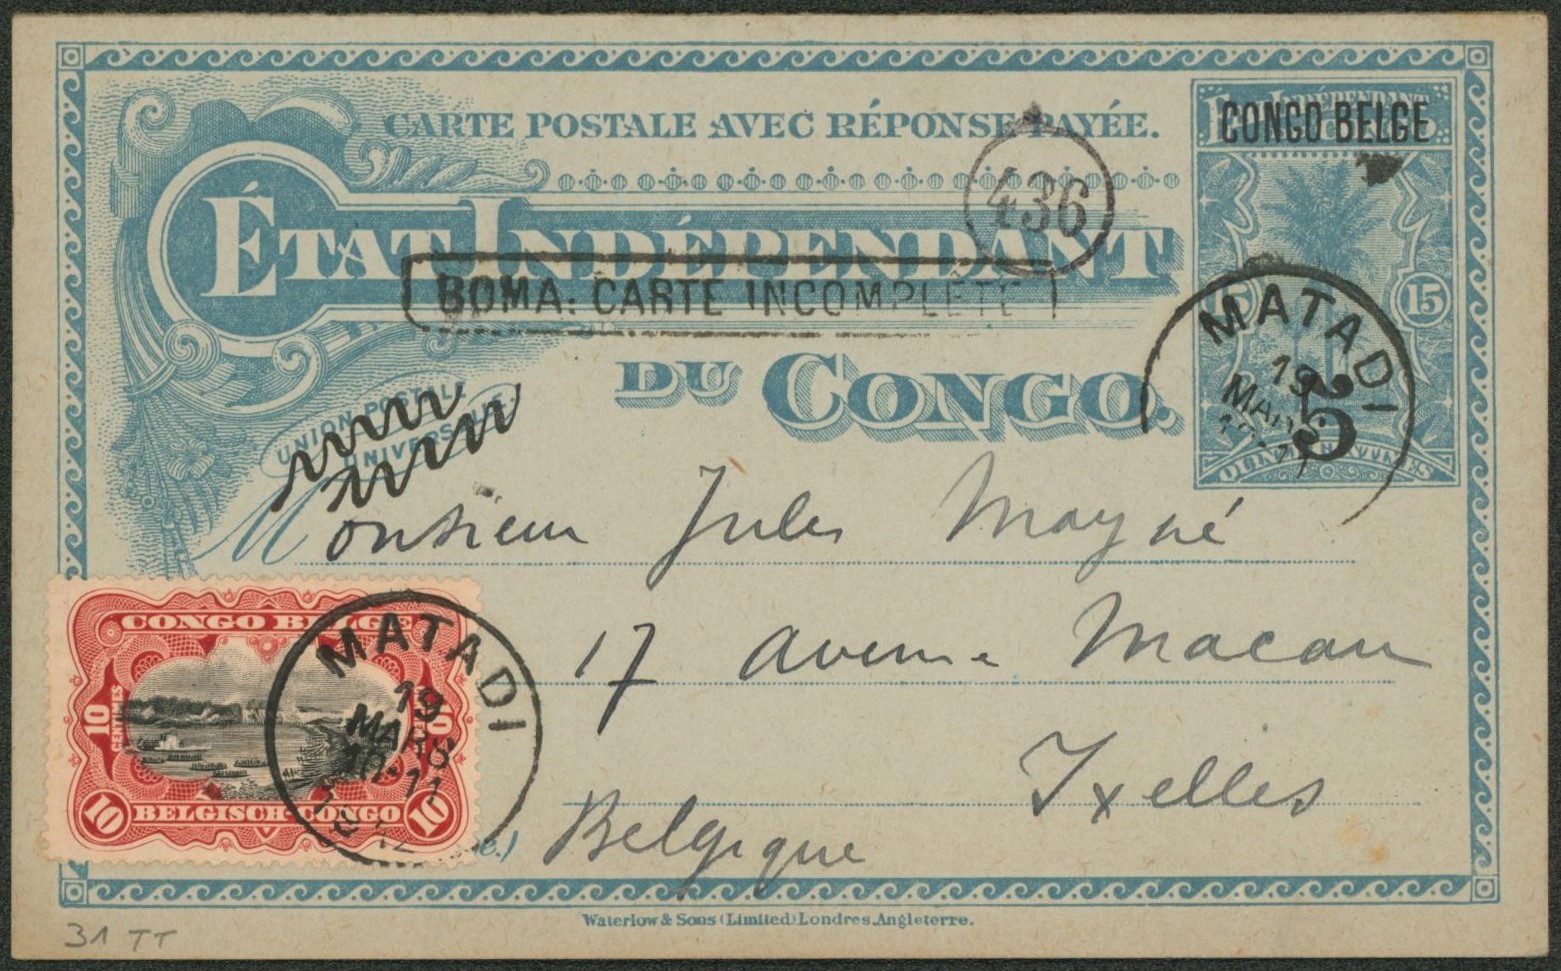 CARTE POSTALE AVEC RÉPONSE PAYÉE.
436
CONGO BELGE
ÉTAT INDÉPENDANT
BOMA: CARTE INCOMPLÈTE
DU CONGO.
15
MATADI
19
MARS
5
UNION POSTALE
UNIVERSELLE.
Monsieur Jules Mayné
17 avenue Macau
Ixelles
Belgique
CONGO BELGE
10
CENTIMES
10
BELGISCH-CONGO
10
10
MATADI
19
MARS
10-11
Waterlow & Sons (Limited) Londres, Angleterre.
31 TT